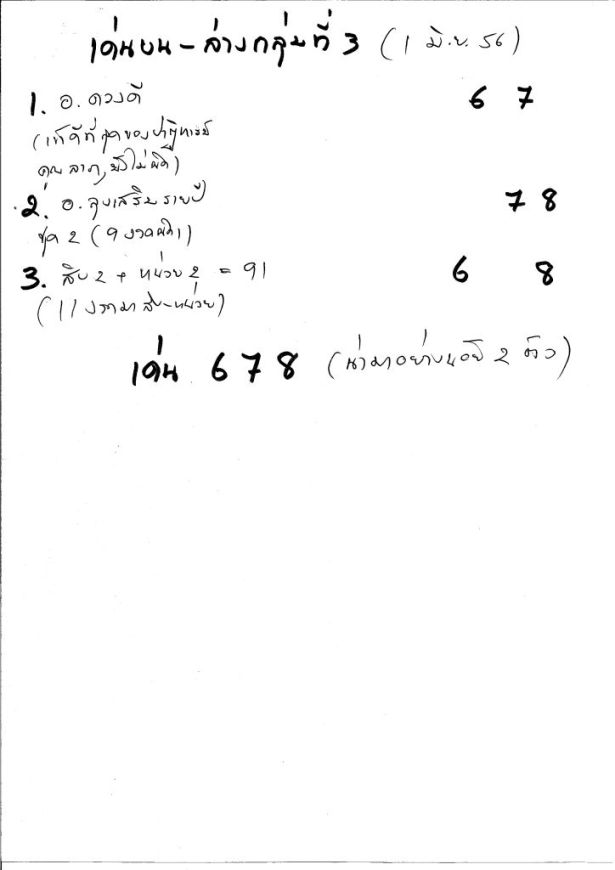 เด่นบน - ล่างกลุ่มที่ 3 (1 มิ.ย. 56)
1. อ. ดวงดี 6 7
(เก้ดีที่สุดของปาฏิหารย์
คุณลาภ, ยังไม่ผิด)
2. อ. ลุงเสริม รายปี 7 8
ชุด 2 (9 งวดผิด1)
3. สิบ 2 + หน่วย 2 = 91 6 8
(11 งวดมา สิบ-หน่วย)
เด่น 6 7 8 (น่ามาอย่างน้อย 2 ตัว)